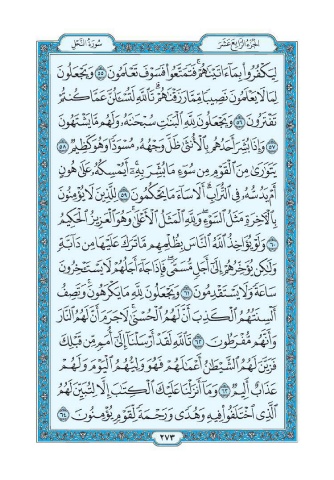 سُورَةُ النَّحْلِ
الجُزْءُ الرَّابِعَ عَشَرَ
لِيَكْفُرُوا۟ بِمَآ ءَاتَيْنَٰهُمْ ۚ فَتَمَتَّعُوا۟ ۖ فَسَوْفَ تَعْلَمُونَ ٥٥ وَيَجْعَلُونَ
لِمَا لَا يَعْلَمُونَ نَصِيبًا مِّمَّا رَزَقْنَٰهُمْ ۗ تَٱللَّهِ لَتُسْـَٔلُنَّ عَمَّا كُنتُمْ
تَفْتَرُونَ ٥٦ وَيَجْعَلُونَ لِلَّهِ ٱلْبَنَٰتِ سُبْحَٰنَهُۥ ۙ وَلَهُم مَّا يَشْتَهُونَ
٥٧ وَإِذَا بُشِّرَ أَحَدُهُم بِٱلْأُنثَىٰ ظَلَّ وَجْهُهُۥ مُسْوَدًّا وَهُوَ كَظِيمٌ ٥٨
يَتَوَٰرَىٰ مِنَ ٱلْقَوْمِ مِن سُوٓءِ مَا بُشِّرَ بِهِۦٓ ۚ أَيُمْسِكُهُۥ عَلَىٰ هُونٍ
أَمْ يَدُسُّهُۥ فِى ٱلتُّرَابِ ۗ أَلَا سَآءَ مَا يَحْكُمُونَ ٥٩ لِلَّذِينَ لَا يُؤْمِنُونَ
بِٱلْءَاخِرَةِ مَثَلُ ٱلسَّوْءِ ۖ وَلِلَّهِ ٱلْمَثَلُ ٱلْأَعْلَىٰ ۚ وَهُوَ ٱلْعَزِيزُ ٱلْحَكِيمُ
٦٠ وَلَوْ يُؤَاخِذُ ٱللَّهُ ٱلنَّاسَ بِظُلْمِهِم مَّا تَرَكَ عَلَيْهَا مِن دَآبَّةٍ
وَلَٰكِن يُؤَخِّرُهُمْ إِلَىٰٓ أَجَلٍ مُّسَمًّى ۖ فَإِذَا جَآءَ أَجَلُهُمْ لَا يَسْتَـْٔخِرُونَ
سَاعَةً ۖ وَلَا يَسْتَقْدِمُونَ ٦١ وَيَجْعَلُونَ لِلَّهِ مَا يَكْرَهُونَ وَتَصِفُ
أَلْسِنَتُهُمُ ٱلْكَذِبَ أَنَّ لَهُمُ ٱلْحُسْنَىٰ ۖ لَا جَرَمَ أَنَّ لَهُمُ ٱلنَّارَ
وَأَنَّهُم مُّفْرَطُونَ ٦٢ تَٱللَّهِ لَقَدْ أَرْسَلْنَآ إِلَىٰٓ أُمَمٍ مِّن قَبْلِكَ
فَزَيَّنَ لَهُمُ ٱلشَّيْطَٰنُ أَعْمَٰلَهُمْ فَهُوَ وَلِيُّهُمُ ٱلْيَوْمَ وَلَهُمْ
عَذَابٌ أَلِيمٌ ٦٣ وَمَآ أَنزَلْنَا عَلَيْكَ ٱلْكِتَٰبَ إِلَّا لِتُبَيِّنَ لَهُمُ
ٱلَّذِى ٱخْتَلَفُوا۟ فِيهِ ۙ وَهُدًى وَرَحْمَةً لِّقَوْمٍ يُؤْمِنُونَ ٦٤
٢٧٣